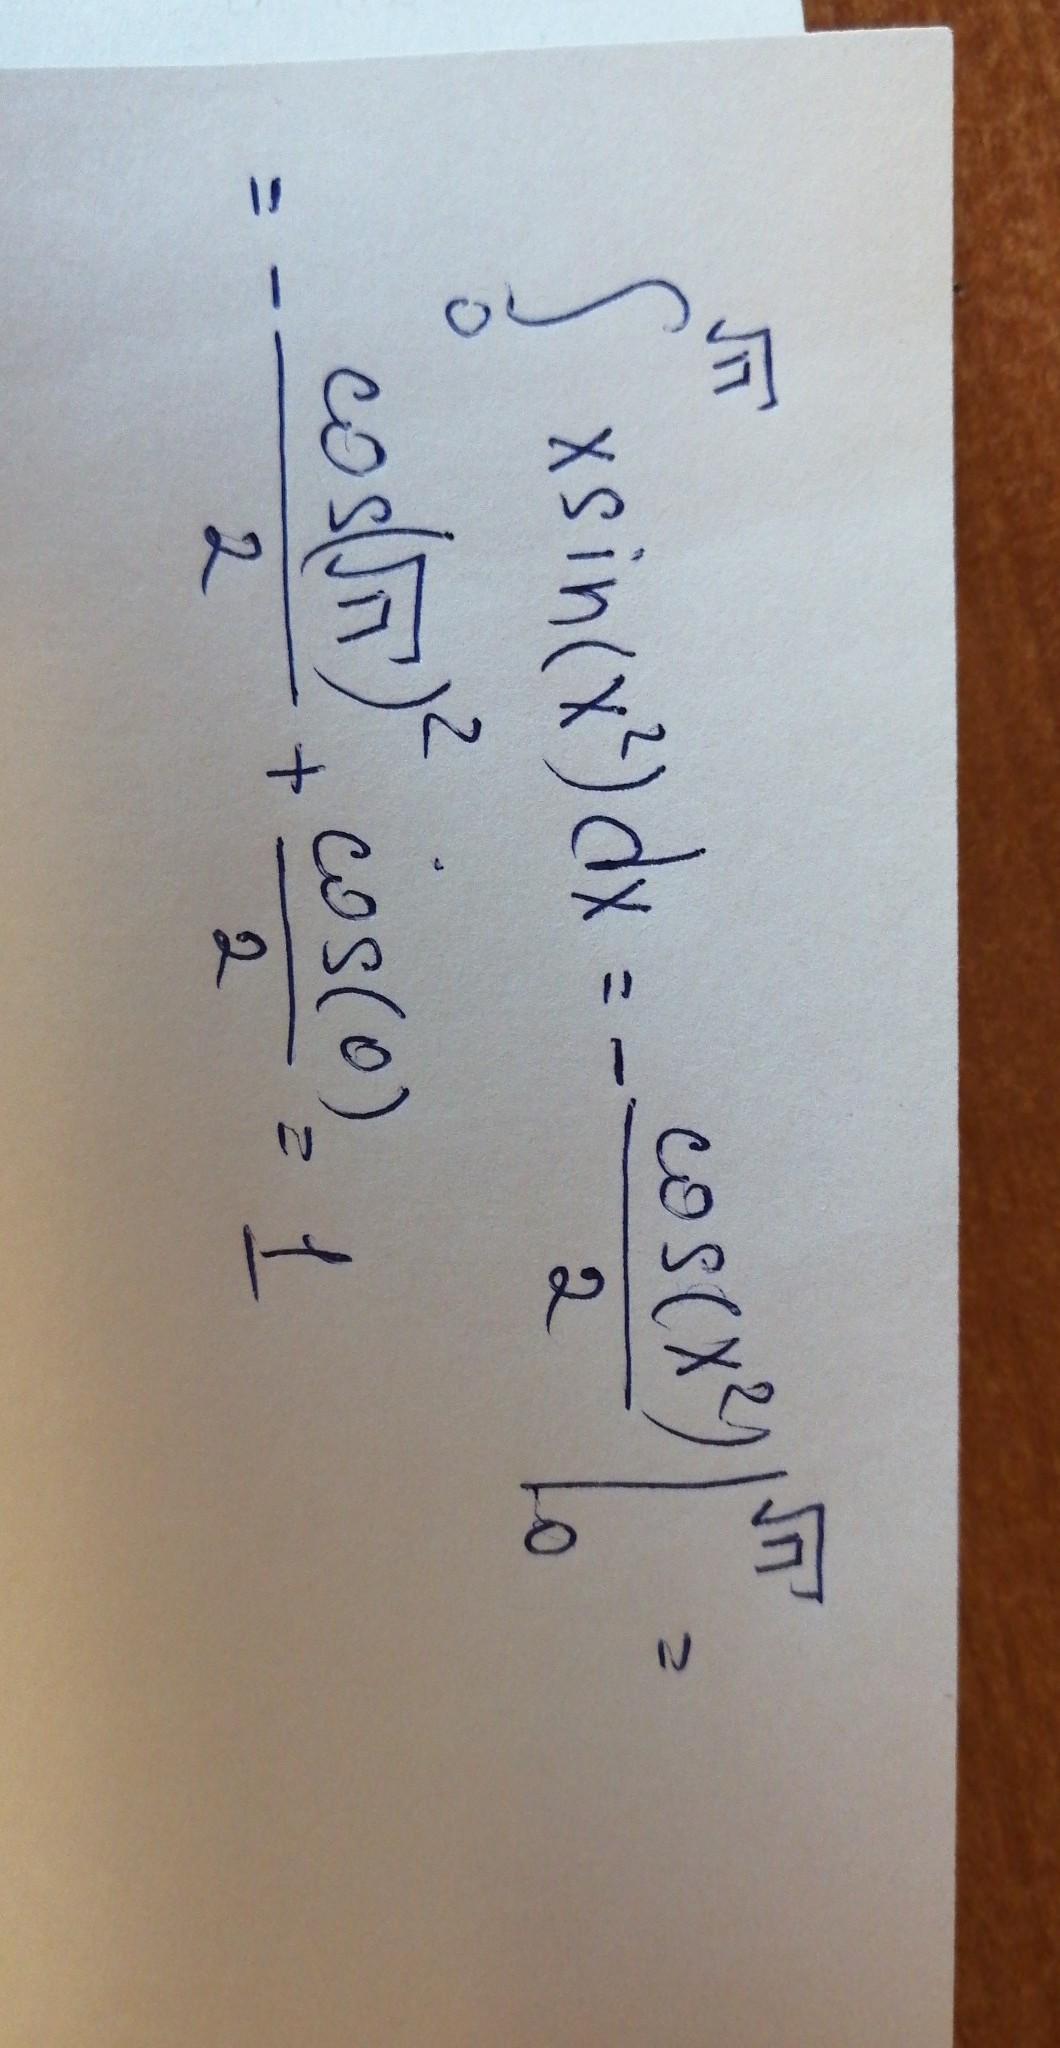 ∫₀^√π x sin(x²) dx = - cos(x²)/2 |₀^√π =
= - cos(√π)²/2 + cos(0)/2 = 1